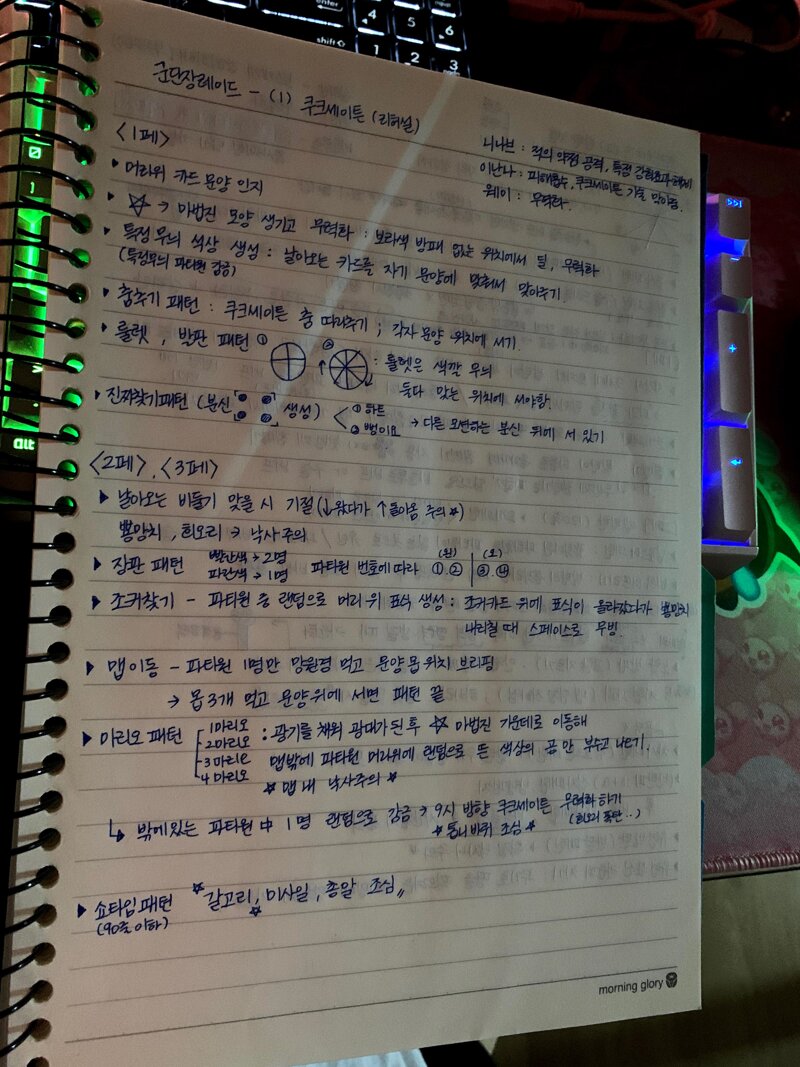 군단장레이드 - (1) 쿠크세이튼 (리허설)
니나브 : 적의 약점 공격, 특정 강화효과 해제
이난나 : 피해흡수, 쿠크세이튼 기술 막아줌.
웨이 : 무력화.
<1페>
▶ 머리위 카드 문양 인지
▶ ☆ → 마법진 모양 생기고 무력화 : 보라색 방패 없는 위치에서 딜, 무력화
▶ 특정 무늬 색상 생성 : 날아오는 카드를 자기 문양에 맞춰서 맞아주기
(특정무늬 파티원 감금)
▶ 춤추기 패턴 : 쿠크세이튼 춤 따라추기 ; 각자 문양 위치에 서기.
▶ 룰렛, 발판 패턴 ① ② : 룰렛은 색깔 무늬
둘다 맞는 위치에 서야함.
▶ 진짜찾기패턴 (분신 생성) < ① 하트
② 뻥이요 → 다른 모션하는 분신 뒤에 서 있기
<2페>, <3페>
▶ 날아오는 비둘기 맞을 시 기절 (↓왔다가 ↑돌아옴 주의★)
뿅망치, 회오리 → 낙사 주의
▶ 장판 패턴 빨간색 → 2명 파란색 → 1명 파티원 번호에 따라 (왼) ①.② | (오) ③.④
▶ 조커찾기 - 파티원 중 랜덤으로 머리 위 표식 생성 : 조커카드 위에 표식이 올라갔다가 뿅망치
내리칠 때 스페이스로 무빙.
▶ 맵이동 - 파티원 1명만 망원경 먹고 문양 몹 위치 브리핑
→ 몹 3개 먹고 문양위에 서면 패턴 끝
▶ 마리오 패턴 1마리오 : 광기를 채워 광대가 된 후 ☆ 마법진 가운데로 이동해
2마리오 맵밖에 파티원 머리위에 랜덤으로 뜬 색상의 공만 부수고 나오기.
3마리오
4마리오 ★ 맵 내 낙사주의 ★
↳ 밖에있는 파티원 中 1명 랜덤으로 감금 → 9시 방향 쿠크세이튼 무력화 하기
(회오리 폭탄..)
★ 톱니바퀴 조심 ★
▶ 쇼타임 패턴 "갈고리, 미사일, 총알 조심"
(90줄 이하)
morning glory
enter
shift
4
5
6
1
2
3
alt